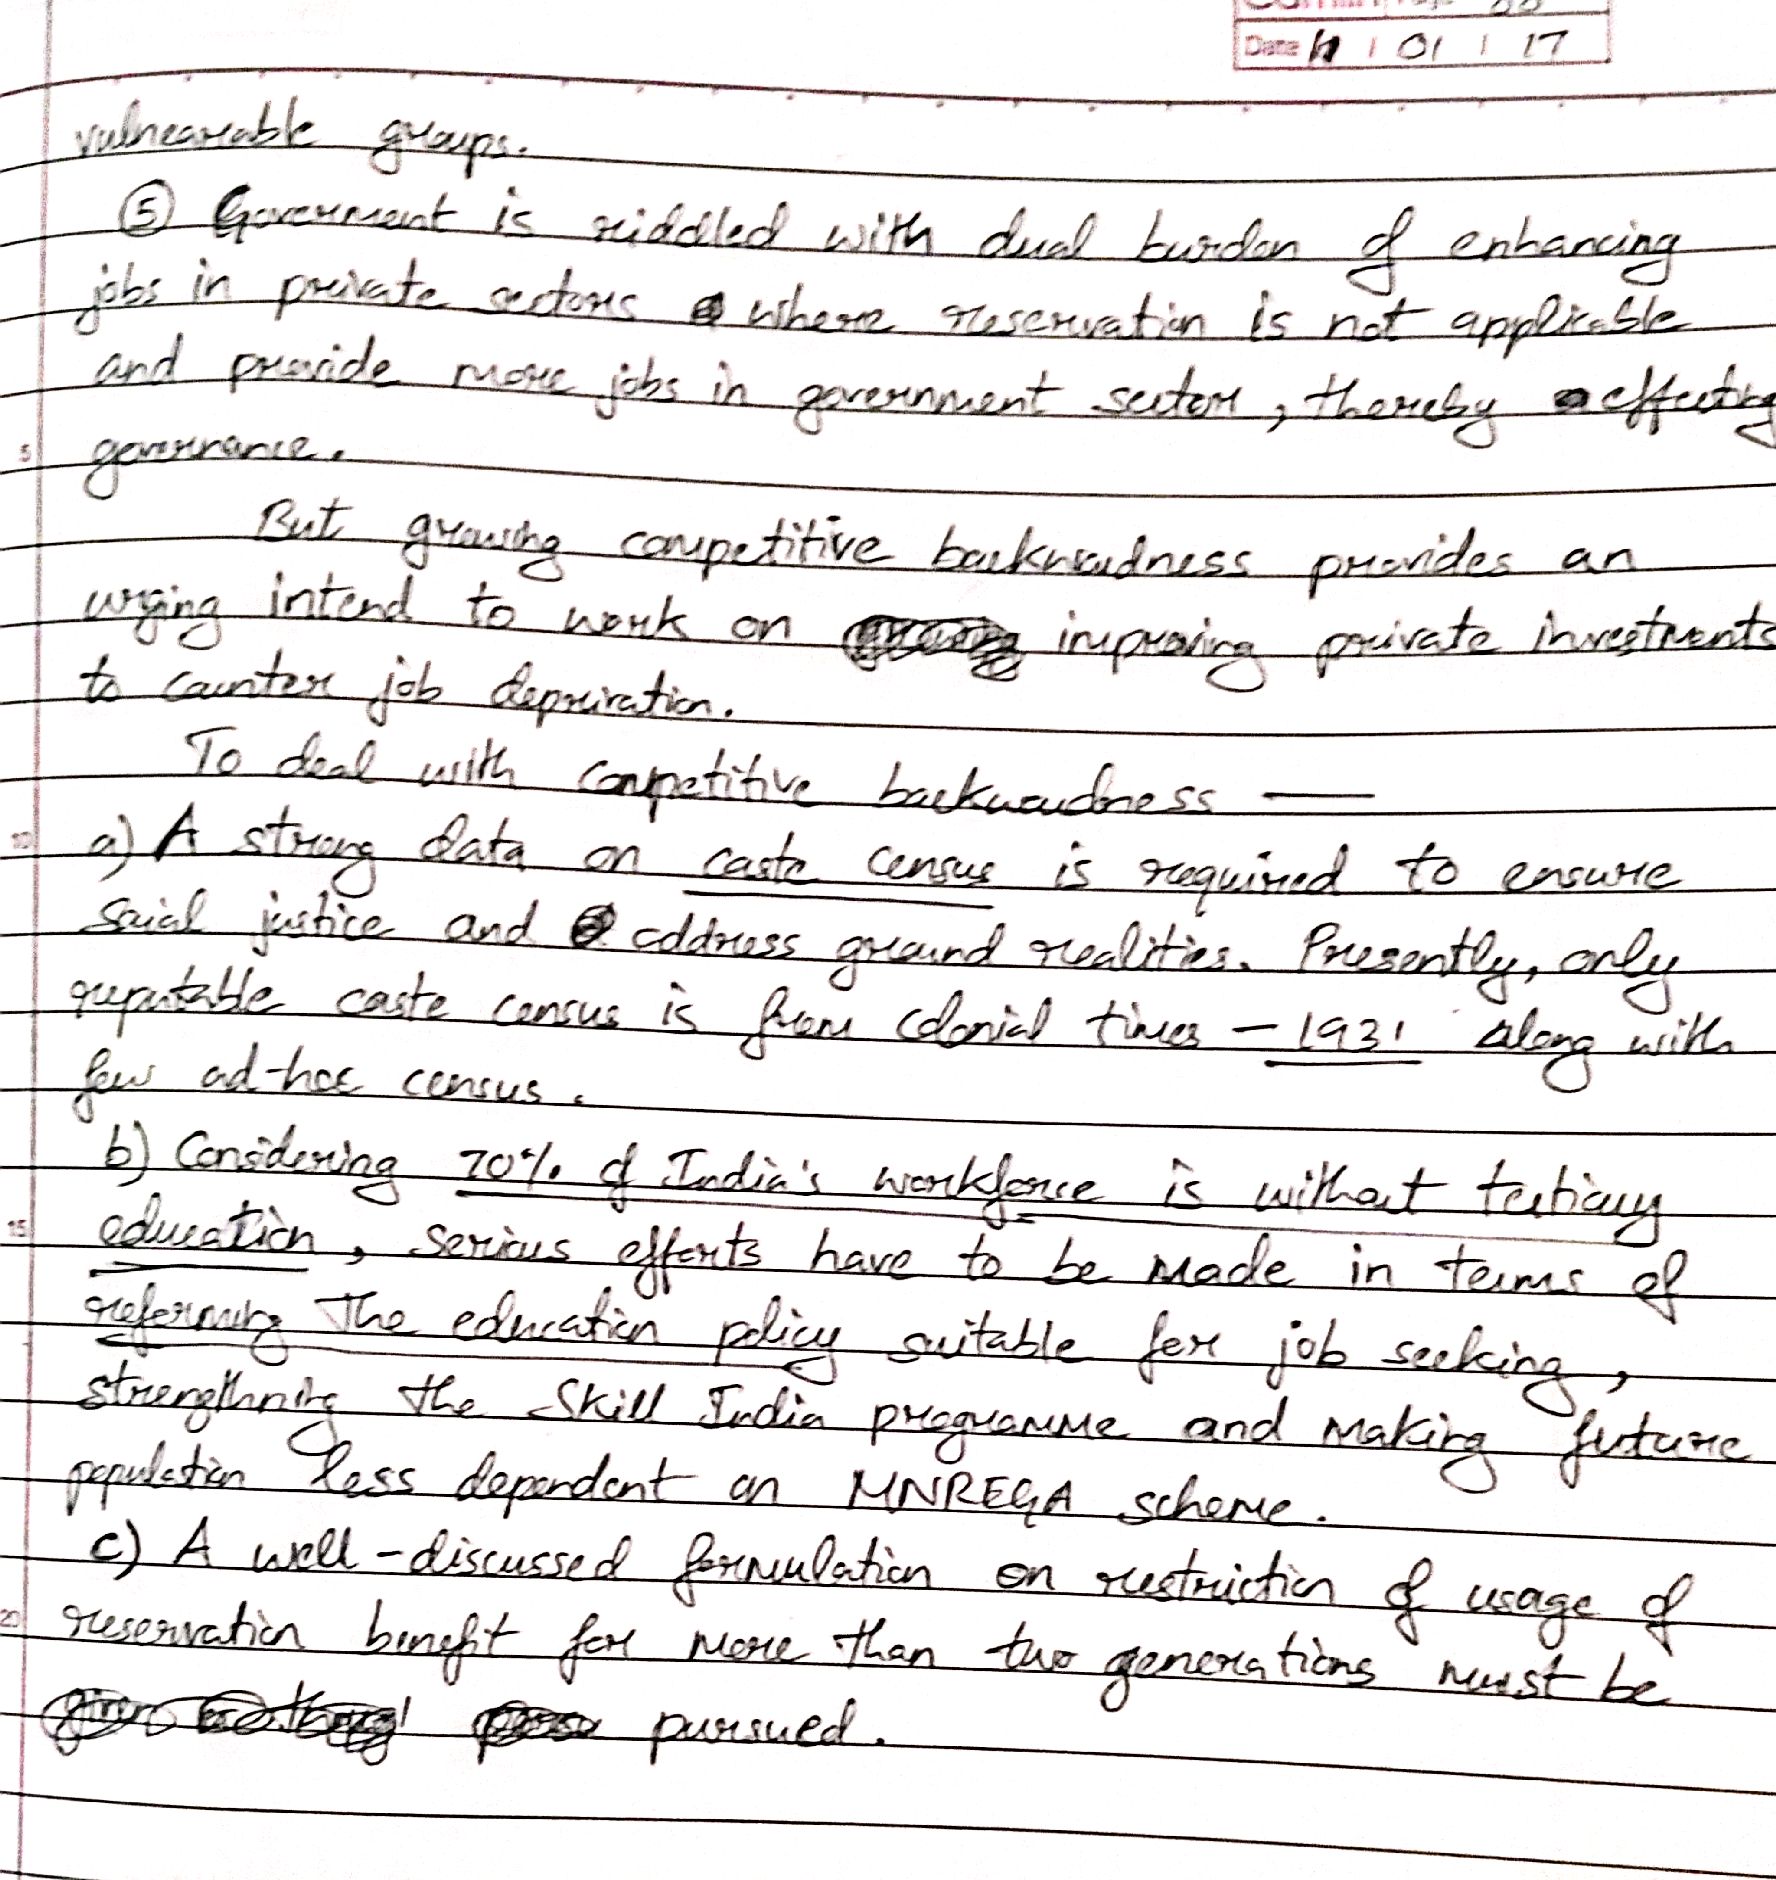 Date 11 | 01 | 17
vulnearable groups.
⑤ Goverment is riddled with dual burden of enhancing
jobs in private sectors where reservation is not applicable
and provide more jobs in government sector, thereby effecting
5 governance.
But growing competitive backwardness provides an
urging intend to work on improving private investments
to counter job deprivation.
To deal with competitive backwardness —
10 a) A strong data on caste census is required to ensure
social justice and address ground realities. Presently, only
reputable caste census is from colonial times - 1931 along with
few ad-hoc census.
b) Considering 70% of India's workforce is without tertiary
15 education, serious efforts have to be made in terms of
reforming the education policy suitable for job seeking,
strengthning the Skill India programme and making future
population less dependent on MNREGA scheme.
c) A well-discussed formulation on restriction of usage of
20 reservation benefit for more than two generations must be
pursued.